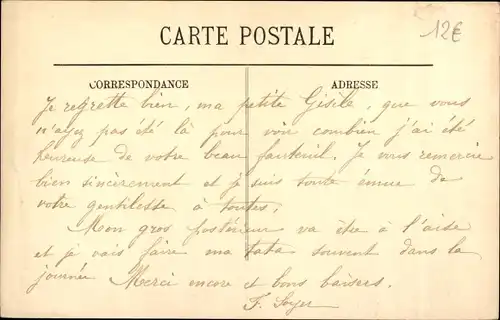 12€
CARTE POSTALE
CORRESPONDANCE
ADRESSE
Je regrette bien, ma petite Gisèle, que vous
n'ayez pas été là pour voir combien j'ai été
heureuse de votre beau fauteuil. Je vous remercie
bien sincèrement et je suis toute émue de
votre gentilesse à toutes.
Mon gros postérieur va être à l'aise
et je vais faire ma tata souvent dans la
journée Merci encore et bons baisers.
F. Soyer